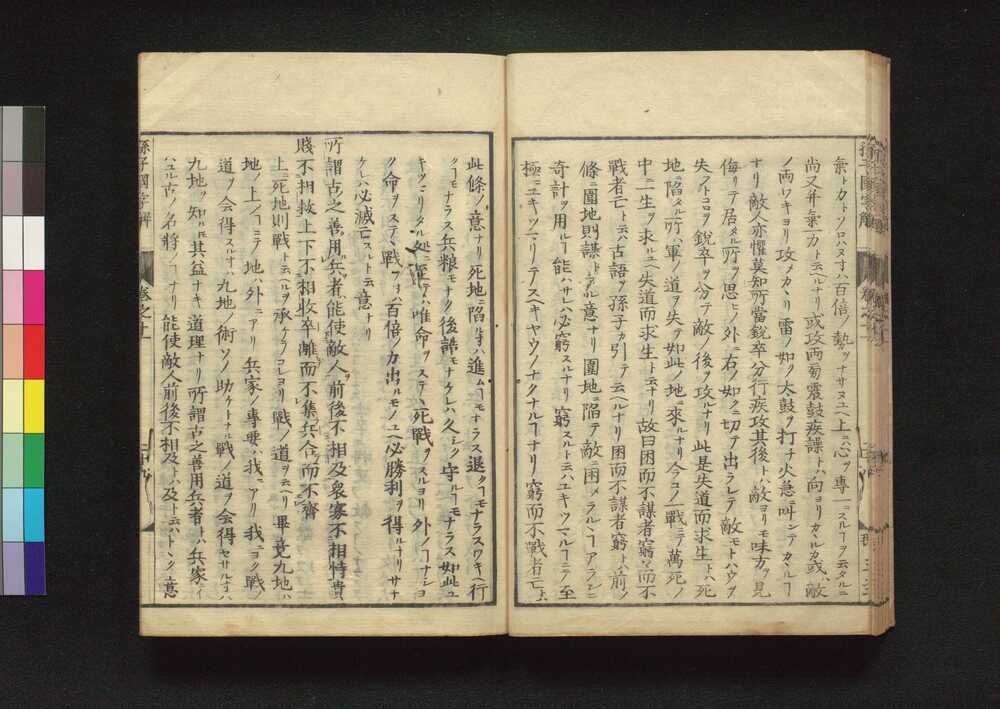 気トカトソロハヌオハ百倍ノ勢ヲナサヌユヘ上ニハ心ヲ専一ニスルヿヲ云タルニ
尚又并氣一力ト云ヘルナリ或攻両旁震鼓疾譟トハ向ヨリカヽルカ或ハ敵
ノ両ワキヨリ攻メカヽリ雷ノ如ク太鼓ヲ打チ火急ニ叫ンテカヽルヿ
ナリ敵人亦懼莫知所當銳卒分行疾攻其後トハ敵ヨリ味方ヲ見
侮リテ居タル所ヲ思ヒノ外ニ右ノ如ク切テ出ラレテ敵モトハウヲ
失フトコロヲ銳卒ヲ分テ敵ノ後ヲ攻ルナリ此是失道而求生トハ死
地ニ陷タル所ハ軍ノ道ヲ失テ如此ノ地ニ來ルナリ今コノ一戰ニテ萬死ノ
中ニ一生ヲ求ルユヘ失道而求生ト云ナリ故曰困而不謀者窮窮而不
戰者亡トハ古語ヲ孫子カ引テ云ヘルナリ困而不謀者窮トハ前ノ
條ニ圍地則謀トアル意ナリ圍地ニ陷テ敵ニ困メラルヽヿアランニ
奇計ヲ用ルヿ能ハサレハ必窮スルナリ窮スルト云ハユキツマルヿニテ至
極ニユキツマリテスヘキヤウノナクナルヿナリ窮而不戰者亡トハ
此條ノ意ナリ死地ニ陷ルオハ進ムヿモナラス退クヿモナラスワキヘ行
クヿモナラス兵粮モナク後詰モナケレハ久シク守ルヿモナラス如此ユ
キツマリタル処ニ至テハ唯命ヲステヽ死戰ヲスルヨリ外ノヿナシヨ
ク命ヲステヽ戰フオハ百倍ノ力出ルモノユヘ必勝利ヲ得ルナリサナ
ケレハ必滅亡スルト云意ナリ
所謂古之善用兵者能使敵人前後不相及衆寡不相恃貴
賤不相救上下不相收卒離而不集兵合而不齊
上ニ死地則戰ト云ヘルヲ承ケテコレヨリ戰ノ道ヲ云ヘリ畢竟九地ハ
地ノ上ノヿニテ地ハ外ニアリ兵家ノ專要ハ我ニアリ我ニヨク戰ノ
道ヲ会得スルオハ九地ノ術ソノ助ケトナル戰ノ道ヲ会得セサルオハ
九地ヲ知ルモ其益ナキ道理ナリ所謂古之善用兵者トハ兵家ノイ
ハユル古ノ名將ノヿナリ能使敵人前後不相及トハ及トハトヽク意
孫子國字解
卷之十一